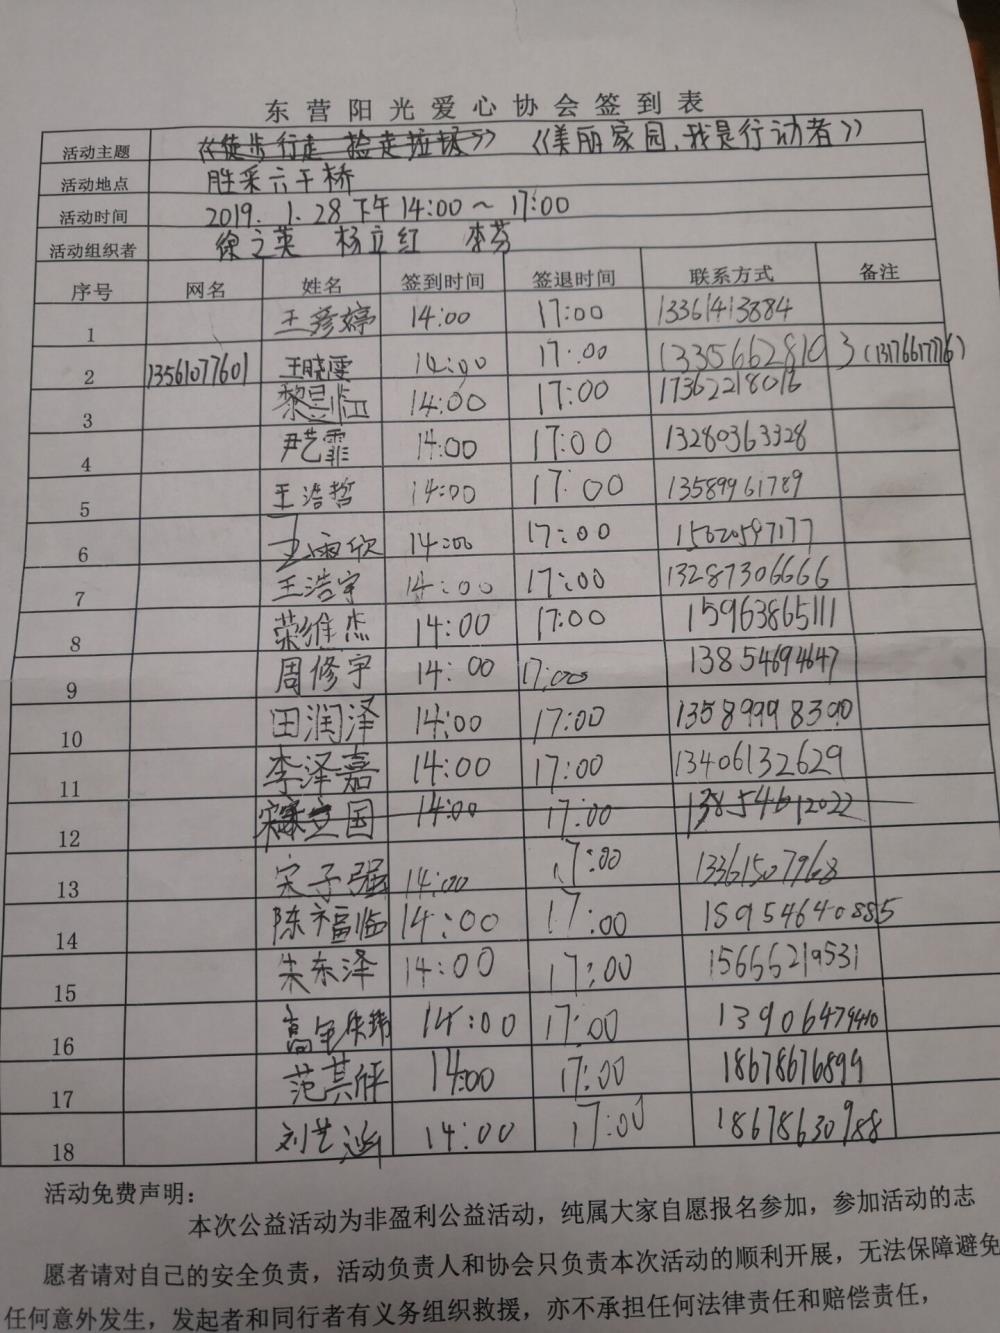 东营阳光爱心协会签到表
活动主题 《徒步行走 捡走垃圾》 《美丽家园、我是行动者》
活动地点 胜采六干桥
活动时间 2019.1.28下午14:00～17:00
活动组织者 徐立英 杨立红 李芬
序号 网名 姓名 签到时间 签退时间 联系方式 备注
1 王彦婷 14:00 17:00 13361413884
2 13561077601 王晓雯 14:00 17:00 1335662810 3(13176617776)
3 黎昱临 14:00 17:00 17362218016
4 尹艺霏 14:00 17:00 13280363328
5 王浩哲 14:00 17:00 13589961789
6 王雨欣 14:00 17:00 15620597177
7 王浩宇 14:00 17:00 13287306666
8 荣维杰 14:00 17:00 15963865111
9 周修宇 14:00 17:00 13854694647
10 田润泽 14:00 17:00 13589998390
11 李泽嘉 14:00 17:00 13406132629
12 国 14:00 17:00 13854612022
13 宋子强 14:00 17:00 13361507968
14 陈福临 14:00 17:00 15954640885
15 朱东泽 14:00 17:00 15666219531
16 高 14:00 17:00 13906479410
17 范其 14:00 17:00 18678676899
18 刘艺涵 14:00 17:00 18678630988
活动免费声明：
本次公益活动为非盈利公益活动，纯属大家自愿报名参加，参加活动的志
愿者请对自己的安全负责，活动负责人和协会只负责本次活动的顺利开展，无法保障避免
任何意外发生，发起者和同行者有义务组织救援，亦不承担任何法律责任和赔偿责任，